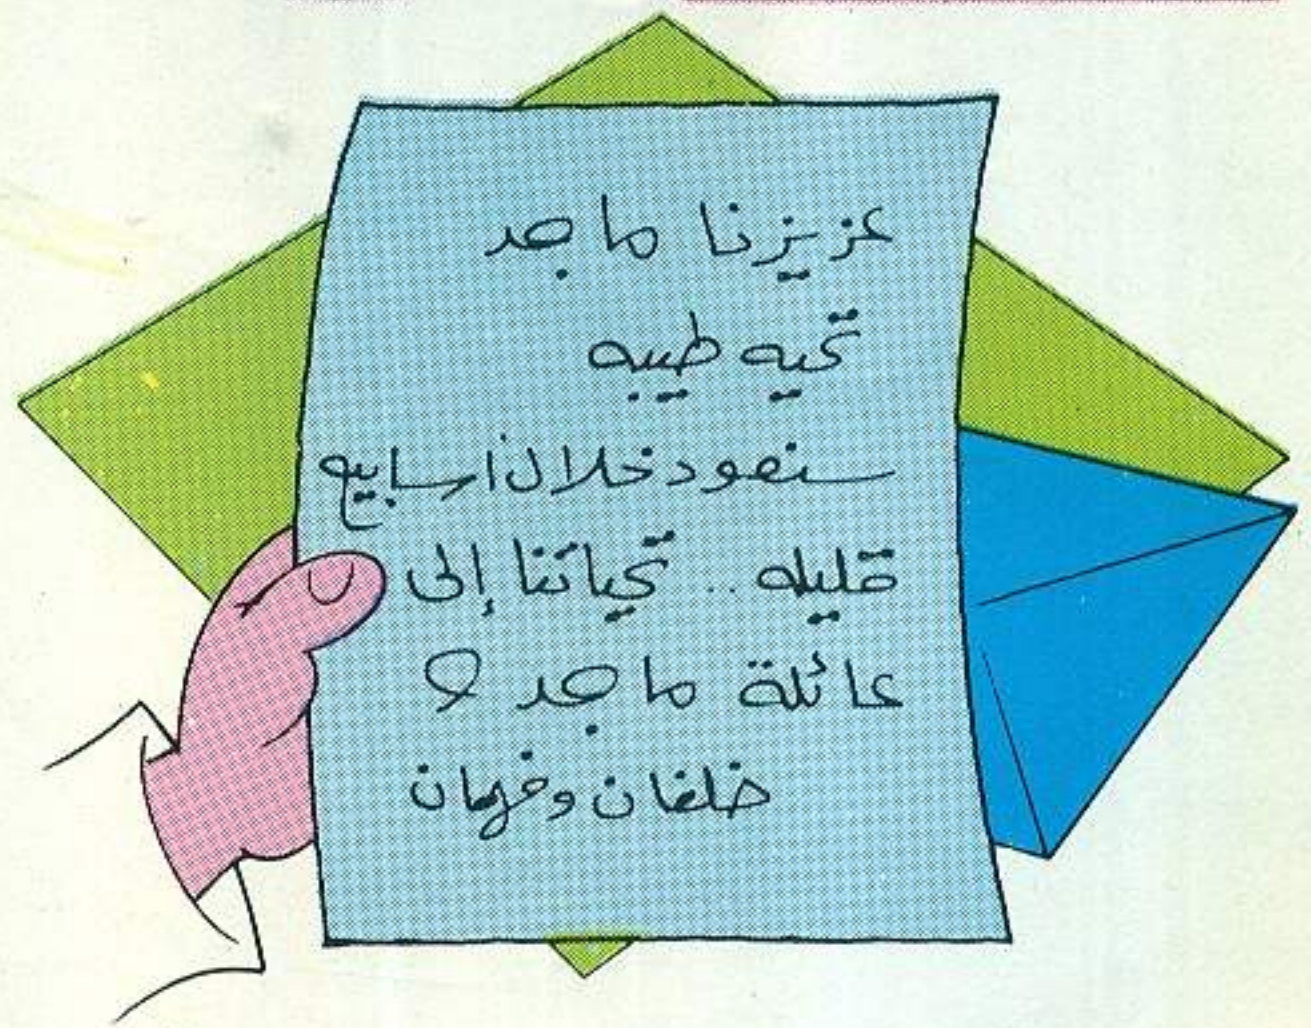 عزيزنا ماجد
تحيه طيبه
سنعود خلال اسابيع
قليله .. تحياتنا إلى
عائلة ماجد و
خلفان وفهمان